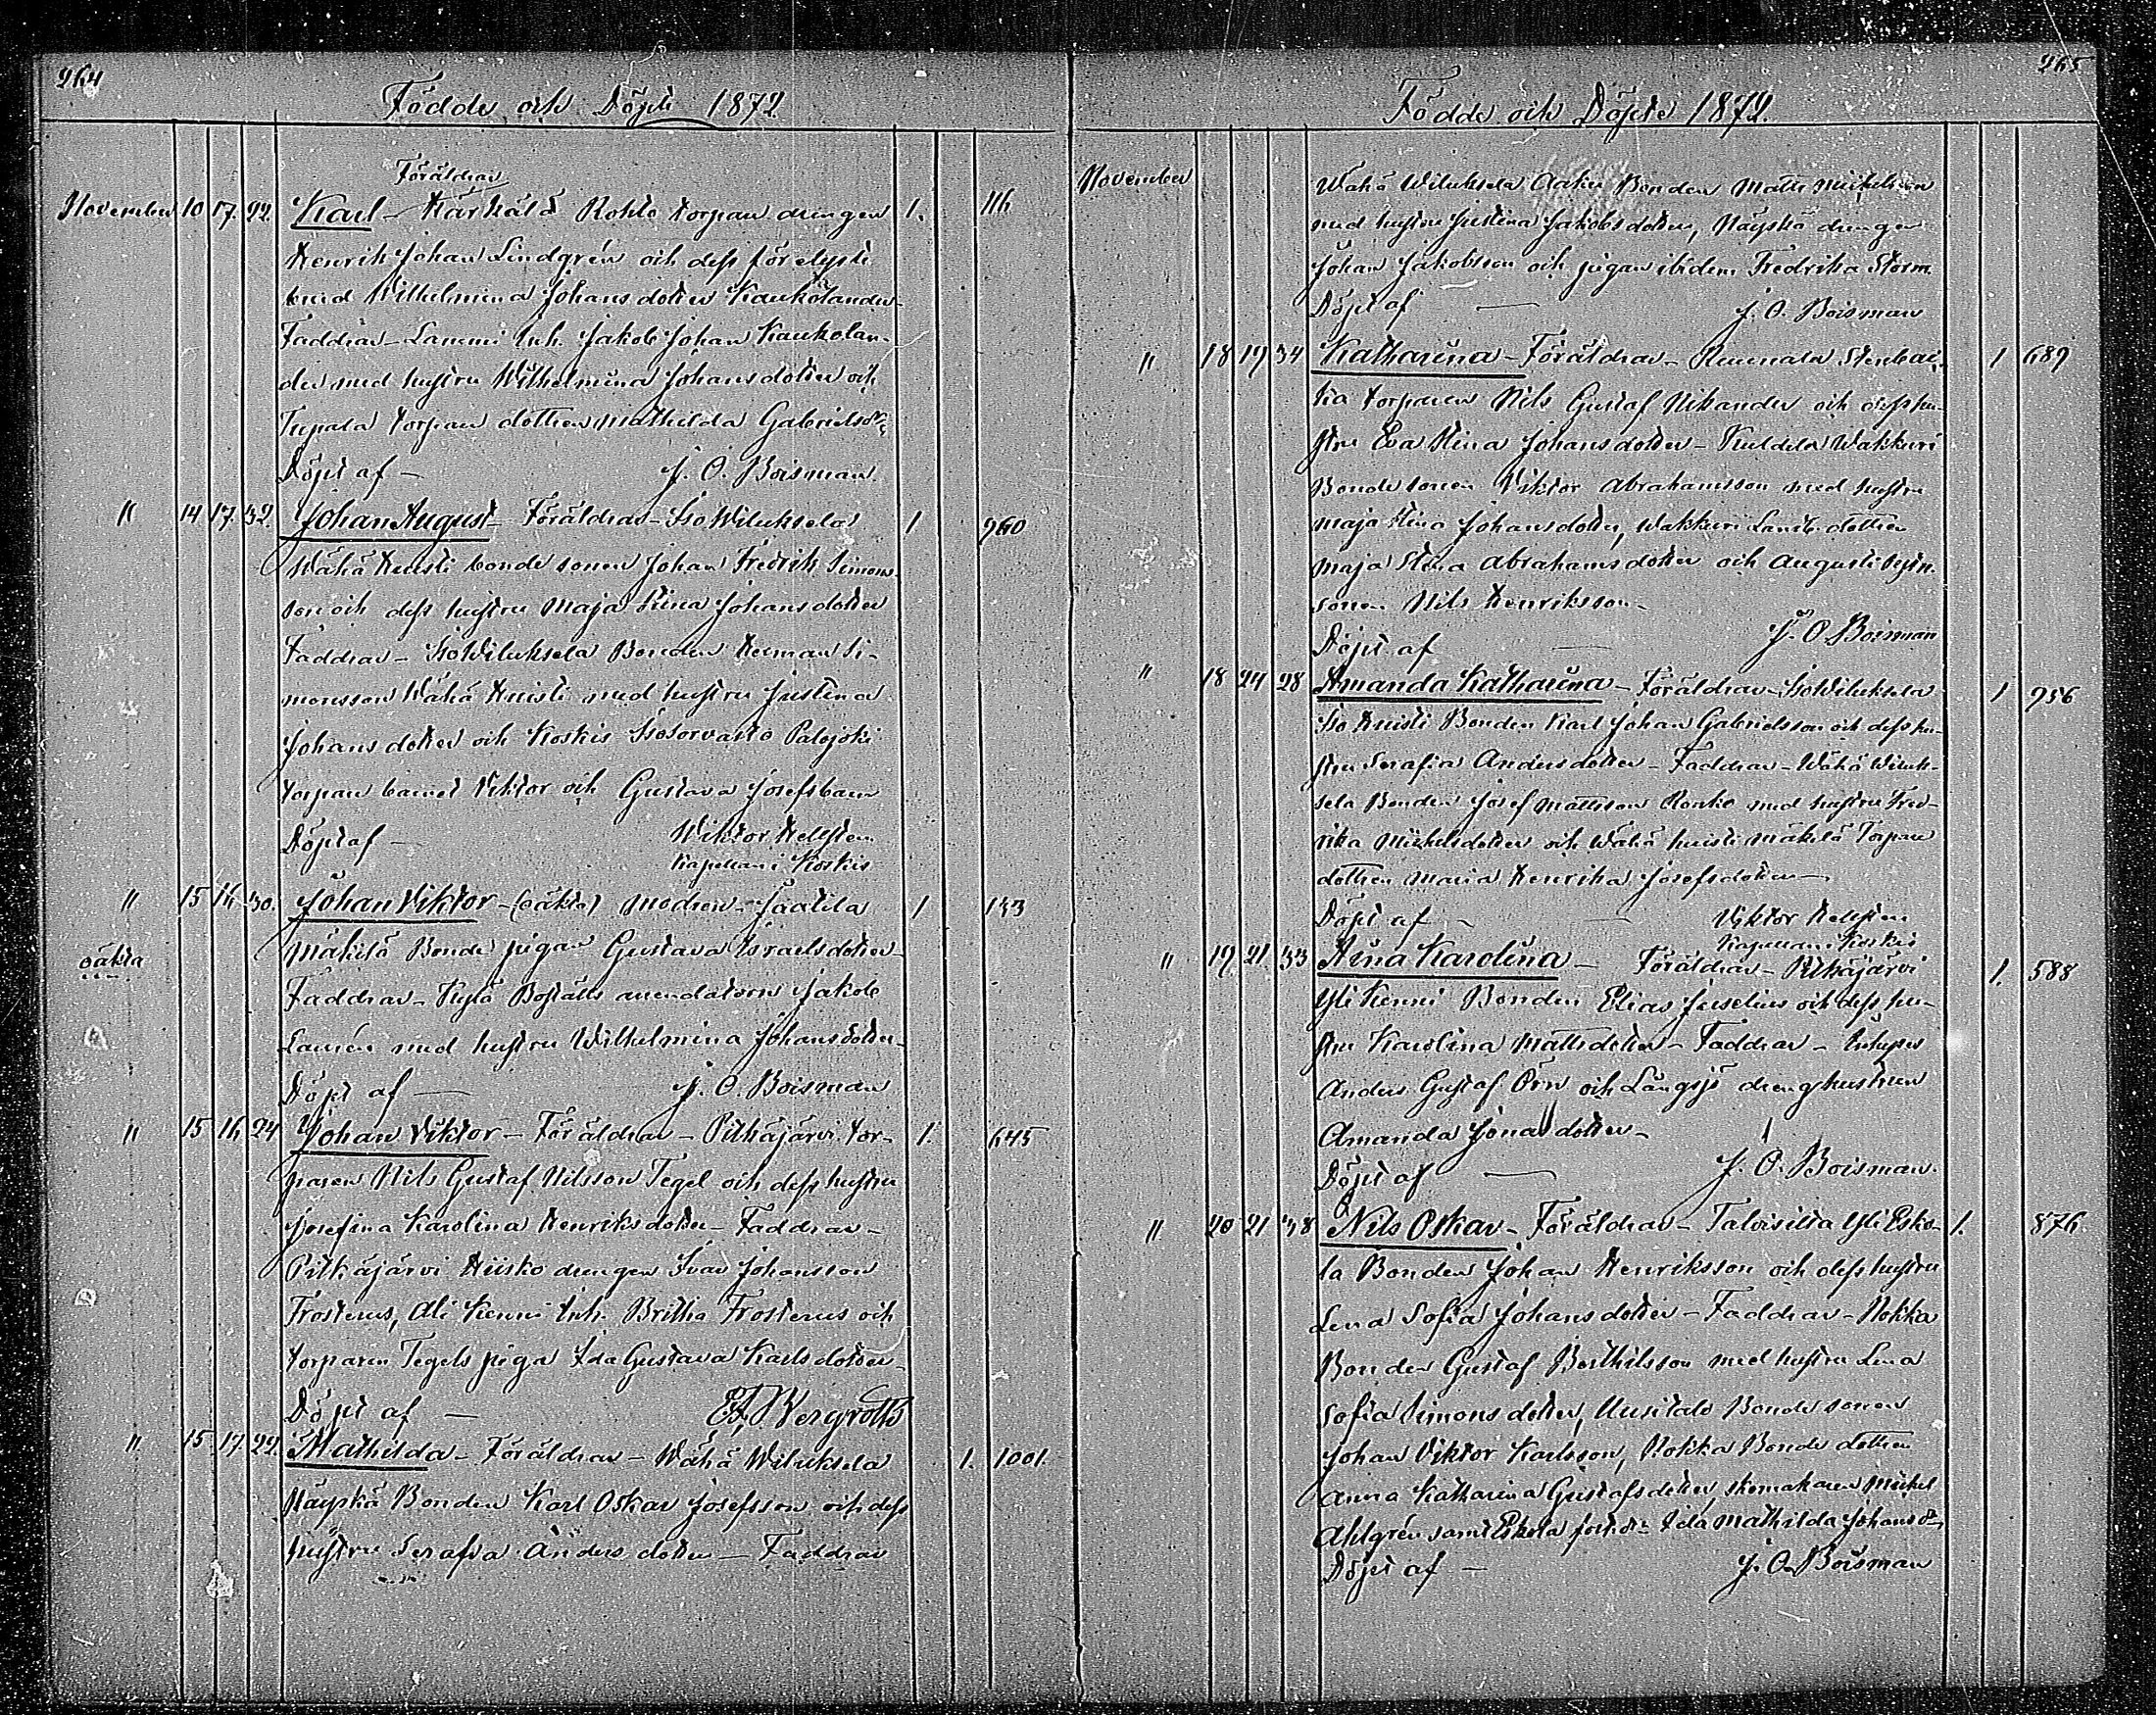 264
Födde och Döpte 1872
Föräldrar
November 10 17. 22. Karl - Härkälä Rohto torpan drengen 1. 116
Henrik Johan Lindgrén och dess förelyste
brud Wilhelmina Johans dotter Kaukolander
Faddrar - Lammi Inh. Jakob Johan Kaukolan-
der med hustru Wilhelmina Johans dotter och
torpare dottren Mathilda Gabrielsdr
Döpt af - J. O. Boisman.
" 14 17. 32. Johan August - Föräldrar - Iso Wiluksela 1 960
Wähä Huisti bonde sonen Johan Fredrik Simons-
son och dess hustru Maja Stina Johans dotter
Faddrar - Iso Wiluksela Bonden Herman Si-
monsson Wähä Huisti med hustru Justina
Johans dotter och Koskis Isosorvasto Palojoki
torpare barnet Viktor och Gustava Josefsbarn
Döpt af - Wiktor Hellsten
Kapellan i Koskis
" 15 16 30. Johan Viktor - (oäkta) modren - Jaatila 1 143
oäkta Mäkilä Bonde pigan Gustava Israelsdotter
Faddrar - Kylä Boställs arendatorn Jakob
Laurén med hustru Wilhelmina Johansdotter
Döpt af - J. O. Boisman
" 15 16 24 Johan Viktor - Föräldrar - Pitkäjärvi tor- 1. 645
paren Nils Gustaf Nilsson Tegel och dess hustru
Josefina Karolina Henriks dotter - Faddrar -
Pitkäjärvi Hiisko drengen Ivar Johansson
Frosterus, Ali Kenni Inh. Britha Frosterus och
torparen Tegels piga Ida Gustava Karlsdotter
Döpt af - Bergroth
" 15. 17. 22. Mathilda - Föräldrar - Wähä Wiluksela 1. 1001.
Näyskä Bonden Karl Oskar Josefsson och dess
hustru Serafia Anders dotter - Faddrar
265
Födde och Döpte 1872.
November Wähä Wiluksela Bonden Matts Mickelsson
med hustru Justina Jakobs dotter, Näyskä drengen
Johan Jakobsson och pigan ibidem Fredrika Storm
Döpt af - J. O. Boisman
" 18 19 34 Katharina - Föräldrar - Stenbac- 1 689
ka torparen Nils Gustaf Nikander och dess hu-
stru Eva Stina Johans dotter - Wakkuri
Bonde sonen Viktor Abrahamsson med hustru
Maja Stina Johansdotter, Wakkuri Lamb. dottren
Maja Stina Abrahams dotter och Augusti
sonen Nils Henriksson -
Döpt af - J. O. Boisman
" 18 24 28 Amanda Katharina - Föräldrar - Iso Wiluksela 1 956
Iso Huisti Bonden Karl Johan Gabrielsson och dess hu-
stru Serafia Andersdotter - Faddrar - Wähä Wiluk-
sela Bonden Josef Mattsson Ronko med hustru Fred-
rika Mickelsdotter och Wähä huisti mäkilä Torpare
dottren Maria Henrika Josefsdotter -
Döpt af - Viktor Hellsten
Kapellan i Koskis
" 19. 21. 33 Stina Karolina - Föräldrar - Pitkäjärvi 1. 588
Yli Kenni Bonden Elias Juselius och dess hu-
stru Karolina Mattsdotter - Faddrar - Inhyses
Anders Gustaf Örn och Långsjö drenghustrun
Amanda Jonas dotter -
Döpt af - J. O. Boisman.
" 20 21 38 Nils Oskar - Föräldrar - Taloisilla Yli Esko- 1. 876
la Bonden Johan Henriksson och dess hustru
Lena Sofia Johans dotter - Faddrar - Nokka
Bonden Gustaf Berthilsson med hustru Lena
Sofia Simons dotter, Uusitalo Bonde sonen
Johan Viktor Karlsson, Nokka Bonde dottren
Anna Katharina Gustafs dotter, skomakaren Mickel
Ahlgrén samt Eskola Ida Mathilda Johansdr
Döpt af - J. O. Boisman